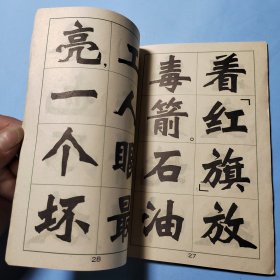 着「红旗」放
毒箭。石油
27
工人眼最
亮，一个坏
28